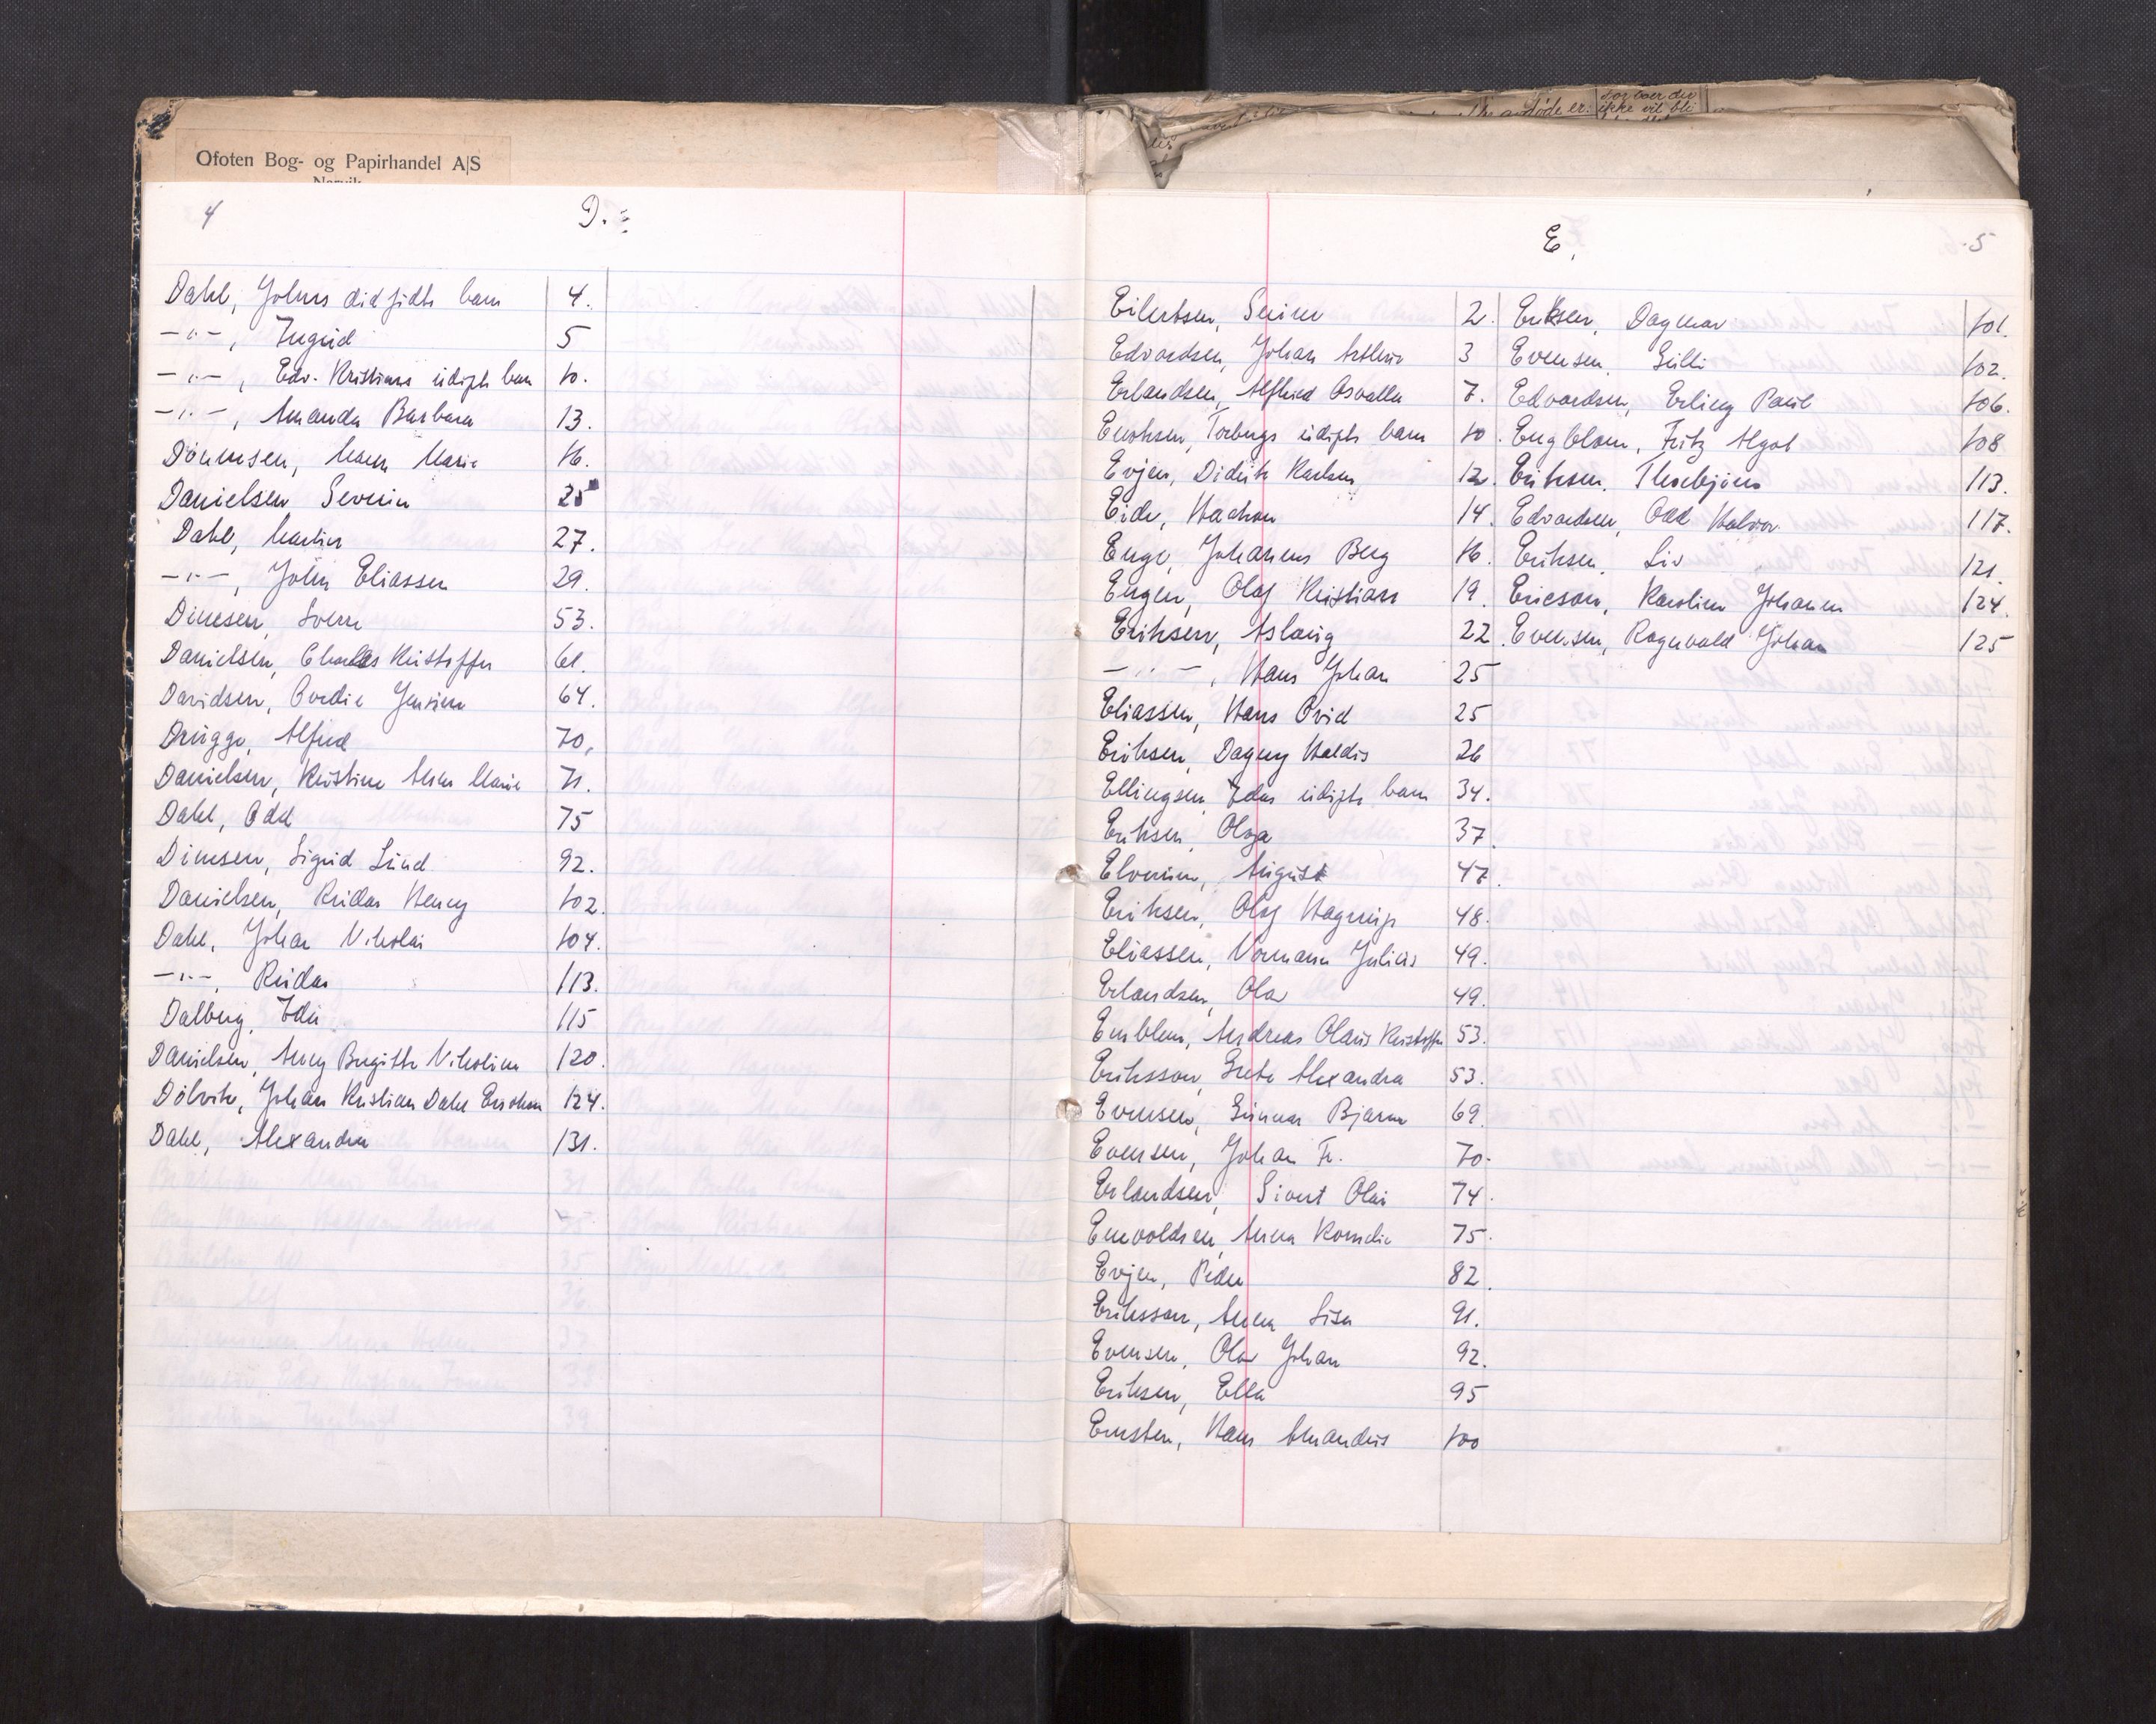 Ofoten Bog- og Papirhandel A|S
4
D.
Dahl, Johns barn 4.
-"-, Ingrid 5
-"-, Edv. Kristians udøpt barn 10.
-"-, Amanda Barbara 13.
Dönnesen, Maren Marie 16.
Danielsen Severin 25
Dahl, Martin 27.
-"-, John Eliassen 29.
Dinesen, Sverre 53.
Danielsen, Charles Kristoffer 61.
Davidsen, Bordie 64.
Drugge, Alfred 70,
Danielsen, Kristine Anna Marie 71.
Dahl, Odd 75
Dinesen, Sigrid Lind 92.
Danielsen, Reidar Henry 102.
Dahl, Johan Nikolai 104.
-"-, Reidar 113.
Dalberg, Ida 115
Danielsen, Anny Bergitte Nikoline 120.
Dölvik, Johan Kristian Dahl 124.
Dahl, Alexandra 131.
E.
5
Eilertsen, 2.
Edvardsen, Johan 3
Erlandsen, Alfhild Osvalda 7.
Enoksen, Torbergs udøpt barn 10.
Evjen, Didrik Karlsen 12.
Eide, Haakon 14.
Enge, Johannes Berg 16.
Engen, Olaf Kristian 19.
Eriksen, Aslaug 22.
-"-, Hans Johan 25
Eliassen, Hans Ovid 25
Eriksen, Dagny Haldis 26
Ellingsen, Idas udøpte barn 34.
Eriksen, Olga 37.
August 47.
Eriksen, Olaf Hagerup 48.
Eliassen, Normann Julius 49.
Erlandsen, Ola 49.
Emblem, Andreas Olaus Kristoffer 53.
Eriksson, Grete Alexandra 53.
Evensen, Gunnar Bjarne 69.
Evensen, Johan Fr. 70.
Erlandsen, Sivert Olai 74.
Enevoldsen, Anna Kornelia 75.
Evjen, Peder 82.
Eriksson, Anna Lisa 91.
Evensen, Ola Johan 92.
Eriksen, Ella 95
Hans Amandus 100
Eriksen, Dagmar 101.
Evensen, Gulli 102.
Edvardsen, Erling Paul 106.
Engblom, Fritz Algot 108
Eriksen, Thorbjørn 113.
Edvardsen, Odd Halvor 117.
Eriksen, Liv 121.
Ericson, Karoline Johanna 124.
Evensen, Ragnvald Johan 125